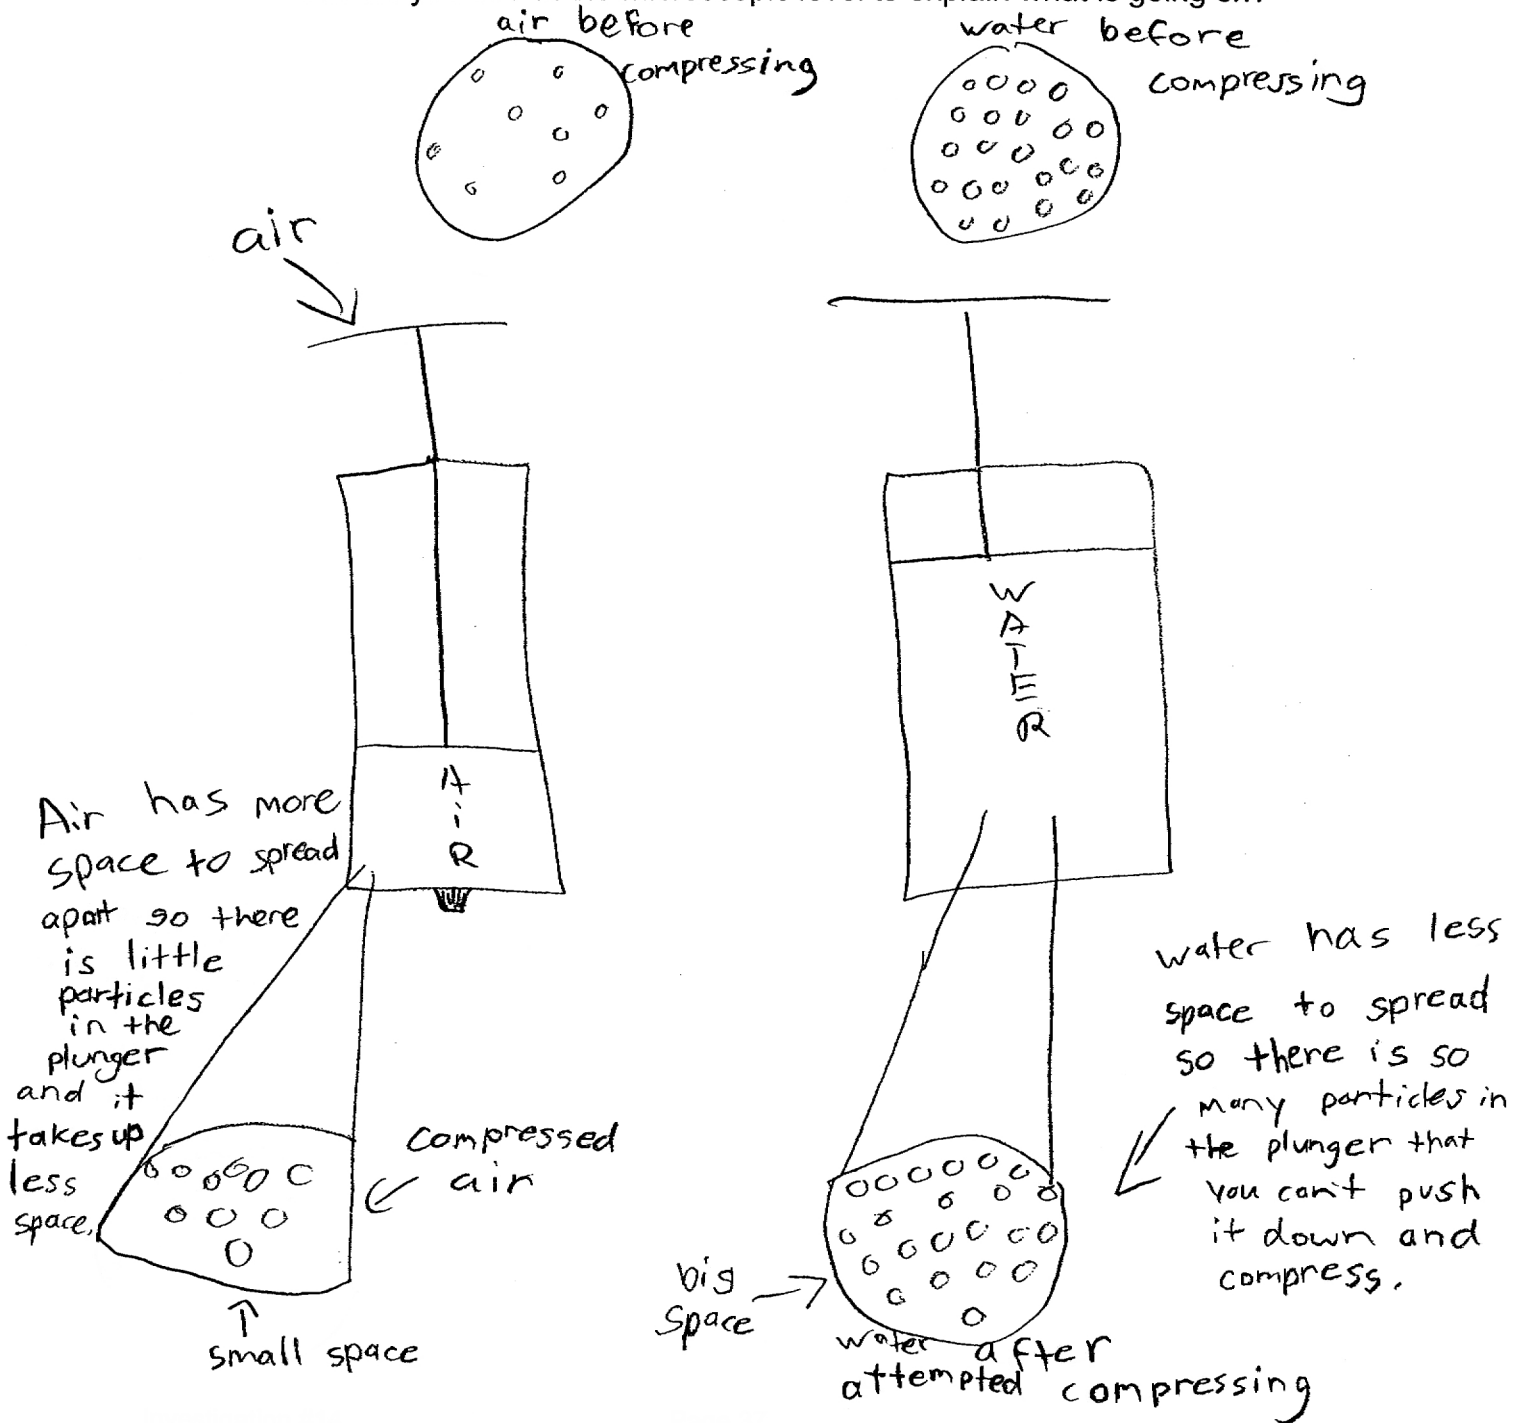 air before
compressing
water before
compressing
air
A
i
R
W
A
T
E
R
Air has more
space to spread
apart so there
is little
particles
in the
plunger
and it
takes up
less
space.
compressed
air
small space
water has less
space to spread
so there is so
many particles in
the plunger that
you can't push
it down and
compress.
big
space
water after
attempted compressing